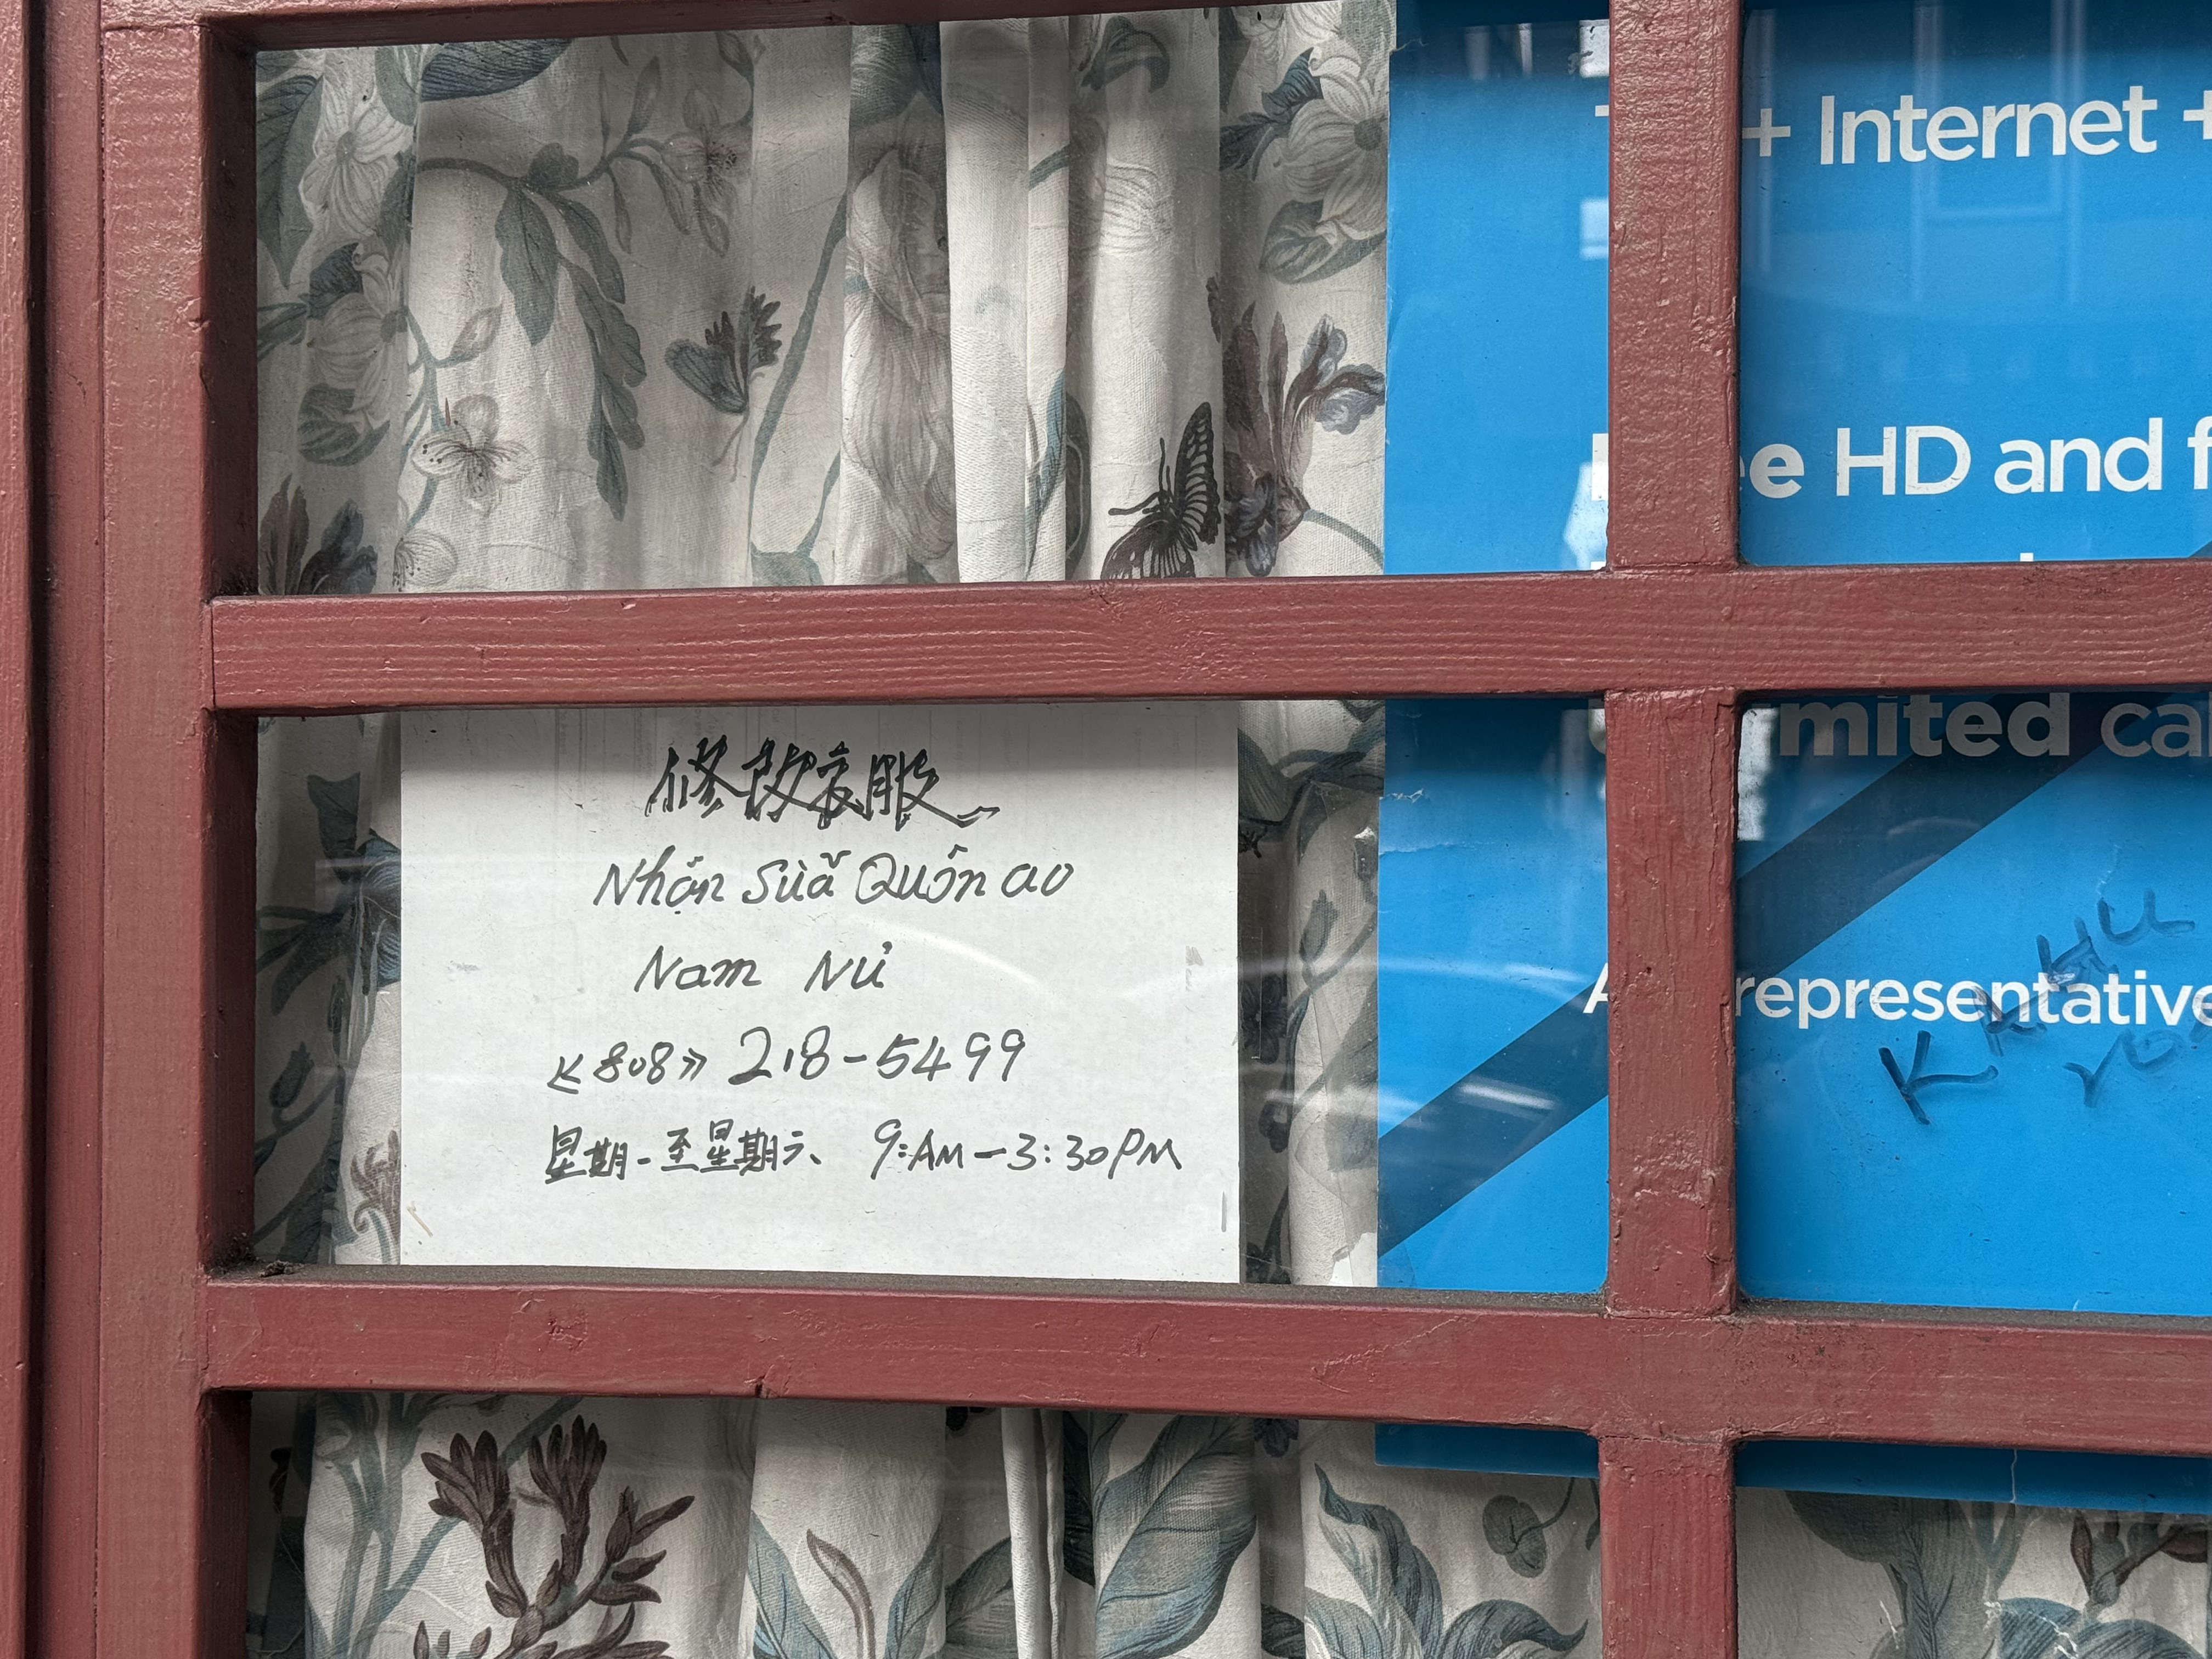 修改衣服
Nhận Sửã Quôn ao
Nam Nử
《808》 218-5499
星期一至星期六、 9:AM-3:30PM
+ Internet +
HD and
mited
representative
K